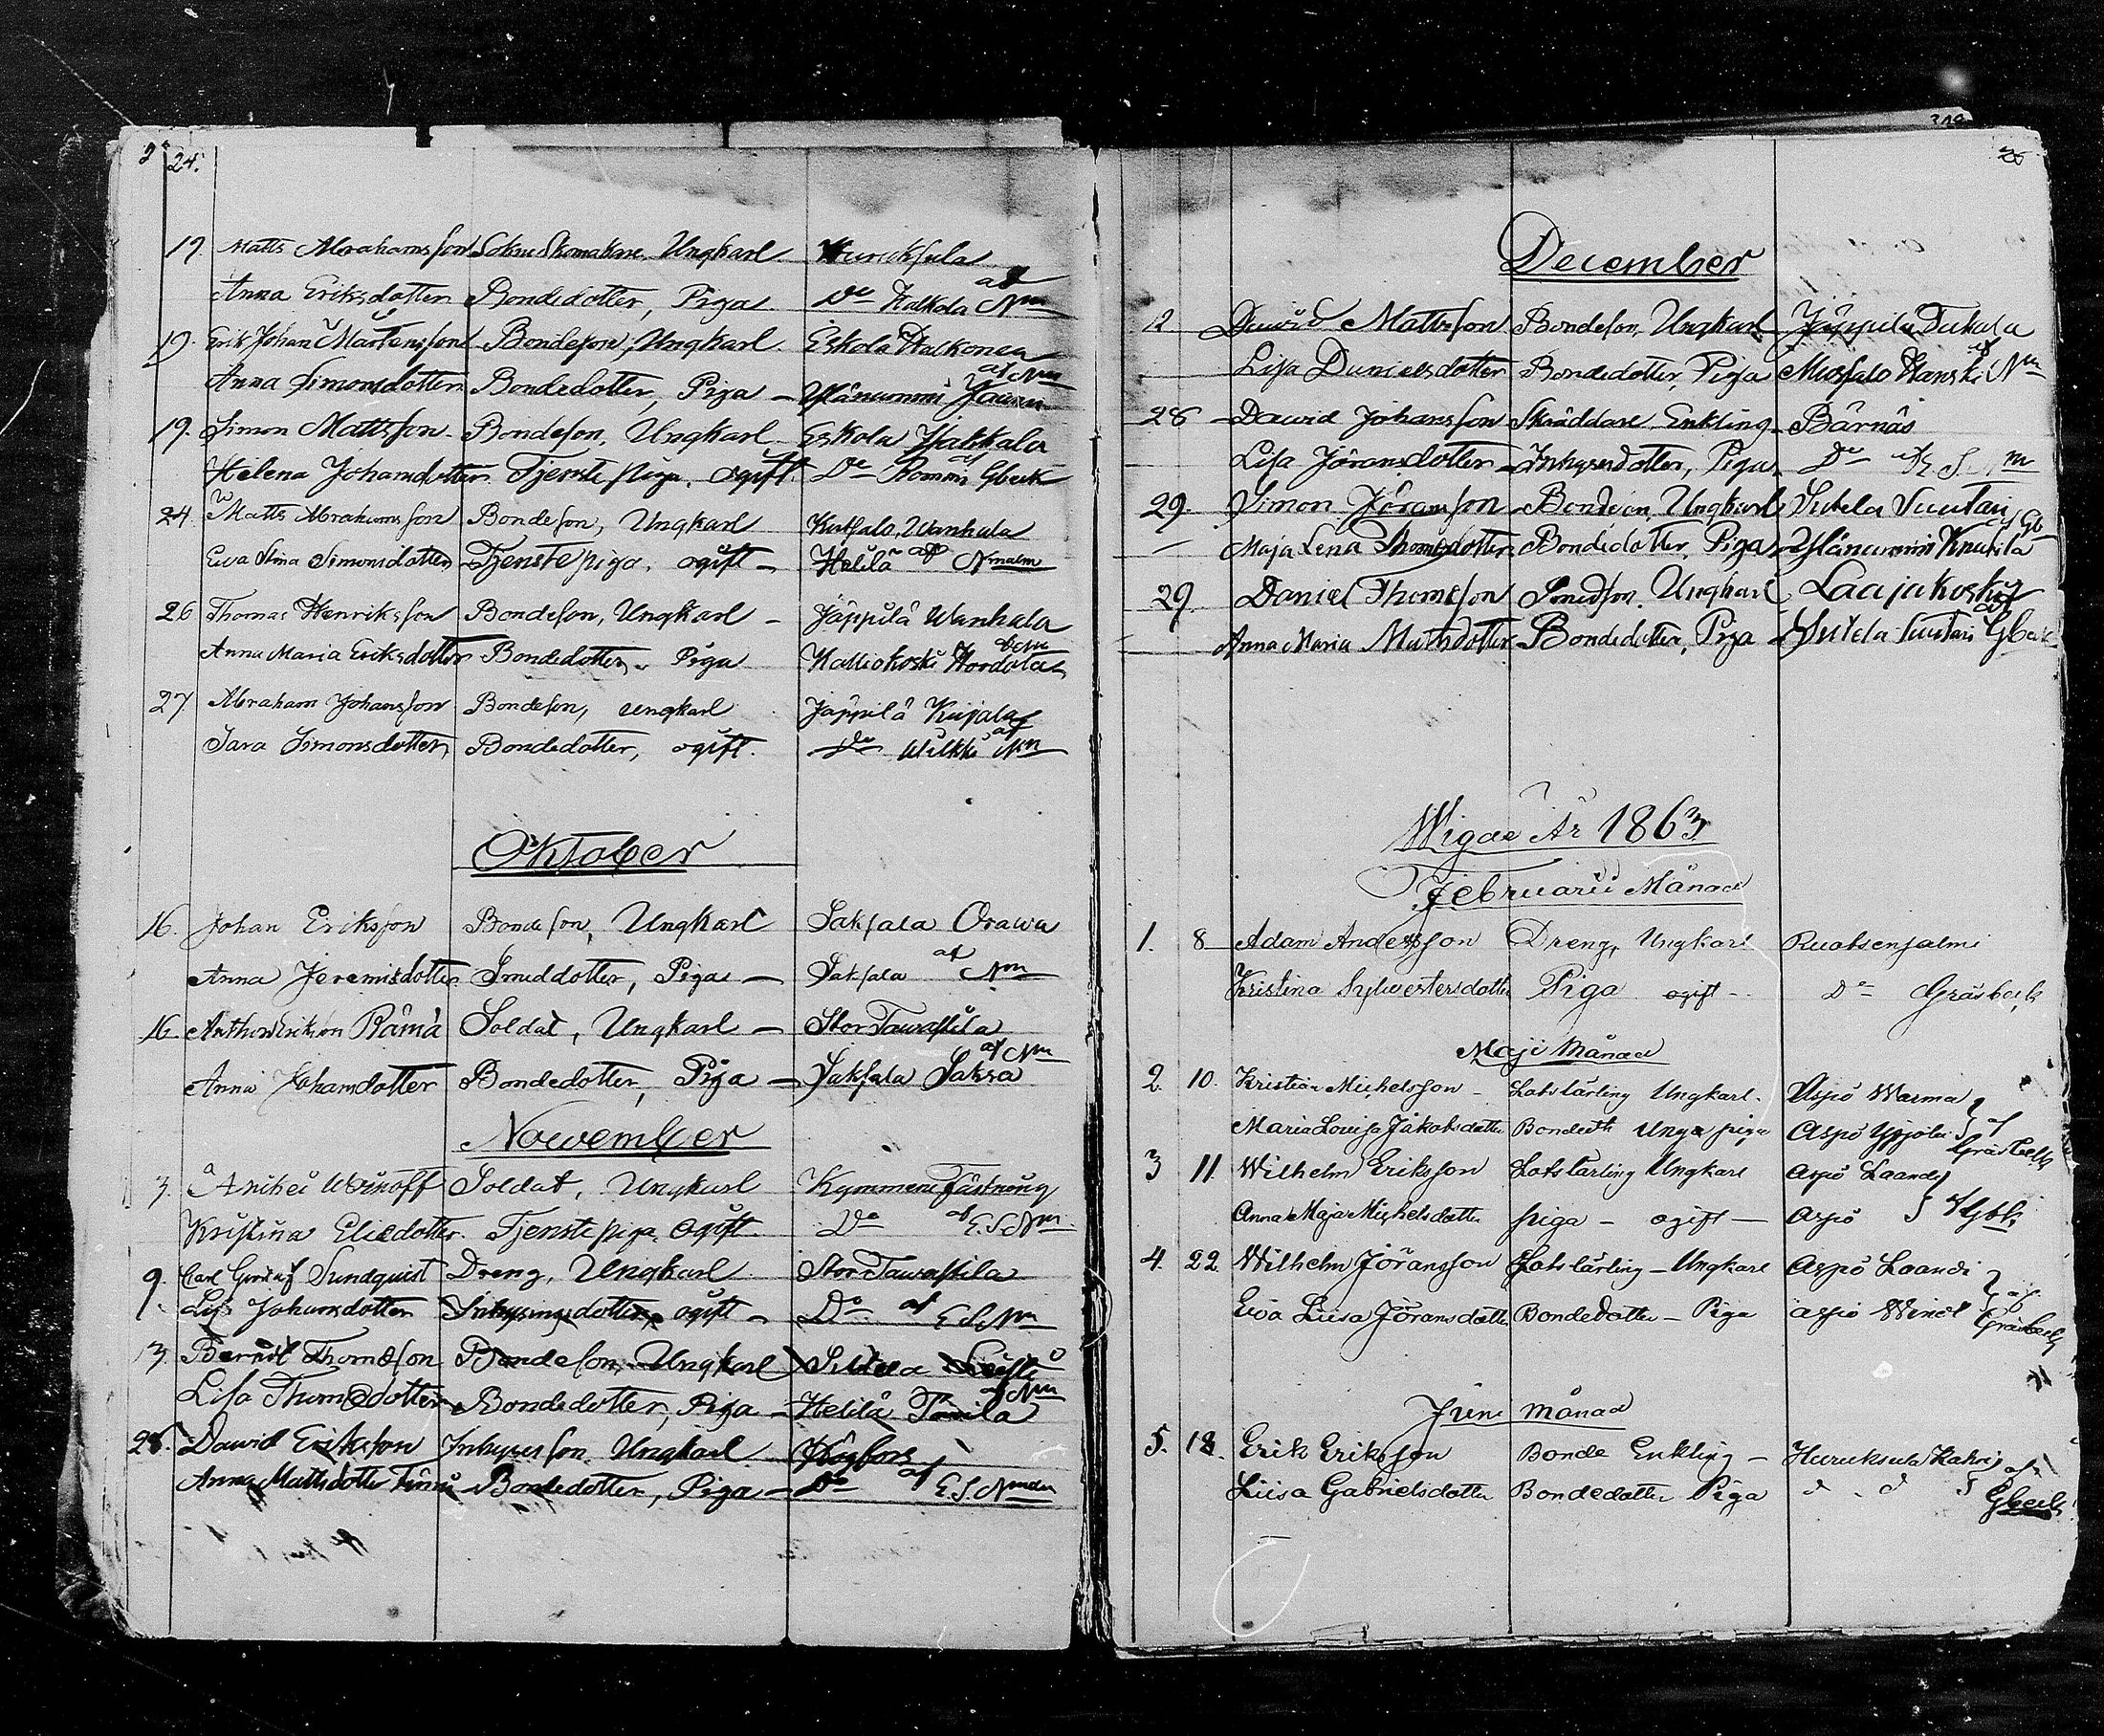 24.
19. Matts Abrahamsson Sokneskomakare Ungkarl Huruksela
Anna Eriksdotter Bondedotter, Piga Do Halkola af Nm
19. Erik Johan Mårtensson Bondeson, Ungkarl Eskola Halkonen
Anna Simonsdotter Bondedotter, Piga – Ylänummi af Nm
19. Simon Mattsson Bondeson, Ungkarl Eskola
Helena Johansdotter Tjenstepiga, ogift. Do af Gbeck
24 Matts Abrahamsson Bondeson, Ungkarl Kutsalo, Wanhala
Ewa Stina Simonsdotter Tjenstepiga, ogift – Helilä af Nmalm
26 Thomas Henriksson Bondeson, Ungkarl – Jäppilä Wanhala
Anna Maria Eriksdotter Bondedotter, Piga Kalliokoski
27. Abraham Johansson Bondeson, ungkarl Jäppilä Kujala
Sara Simonsdotter Bondedotter, ogift. Do Wilkki af Nm
Oktober
16. Johan Eriksson Bondeson, Ungkarl Saksala Orawa
Anna Jeremisdotter Smeddotter, Piga – Saksala af Nm
16. Rämä Soldat, Ungkarl – Stor Tawastila
Anna Johansdotter Bondedotter, Piga – Saksala Saksa af Nm
November
3. Anikei Soldat, Ungkarl Kymmene Fästning
Kristina Eliedotter. Tjenstepiga, ogift. Do af E.S. Nm.
9. Carl Gustaf Sundquist Dreng, Ungkarl Stor Tawastila
Lisa Johansdotter Inhysingsdotter ogift – Do af E S Nm
13 Berndt Thomasson Bondeson, Ungkarl Sutela
Lisa Thomsdotter Bondedotter, Piga – Helilä af Nm
28. Dawid Eriksson Inhyseson, Ungkarl Högfors
Anna Mattsdotter Bondedotter, Piga – Do af E.S. Nm
December
12 Dawid Mattsson Bondeson, Ungkarl Jäppilä Tukala
Lisa Danielsdotter Bondedotter, Piga Mussalo Hanski af Nm
28 – Dawid Johansson Skräddare Enkling – Bärnäs
Lisa Jöransdotter – Inhysesdotter, Piga Do af E. S. Nm
29. Simon Jöransson Bondeson, Ungkarl Sutela Suutari
Maja Lena Thomsdotter Bondedotter, Piga – Ylänummi Knutila af Gb
29. Daniel Thomsson Smedson, Ungkarl Laajakoski
Anna Maria Mattsdotter Bondedotter, Piga – Sutela Suutari af Gbeck
Wigde År 1863
Februarii Månad
1. 8 Adam Andersson Dreng, Ungkarl Ruotsensalmi
Kristina Sylwestersdotter Piga ogift – Do Gräsbeck
Maji Månad
2. 10. Kristian Michelsson – Lotslärling Ungkarl. Aspö Warma
Maria Lovisa Jakobsdotter Bonded:r Unga piga Aspö Yypölä } af Gräsbeck
3 11. Wilhelm Eriksson Lotslärling Ungkarl Aspö Laandi
Anna Maja Michelsdotter piga – ogift – Aspö } af Gbk
4. 22. Wilhelm Jöransson Lotslärling – Ungkarl Aspö Laandi
Ewa Liisa Jöransdotter Bondedotter – Piga Aspö } af Gräsbeck
Juni månad
5. 18. Erik Eriksson Bonde Enkling – Huruksela
Liisa Gabrielsdotter Bondedotter Piga d . d af Gbeck